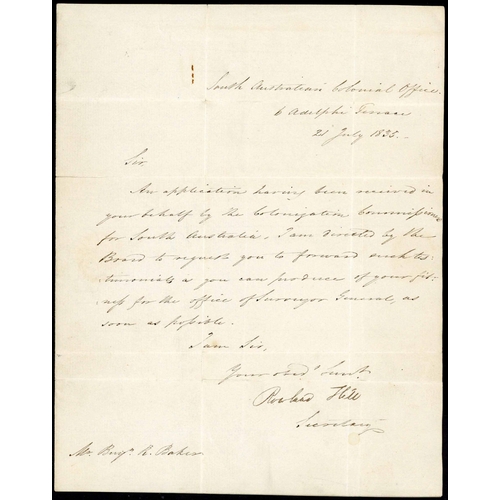 South Australian Colonial Office.
6 Adelphi Terrace
21 July 1835.
Sir,
An application having been received in
your behalf by the Colonization Commissioners
for South Australia, I am directed by the
Board to request you to forward such tes-
timonials as you can produce of your fit-
ness for the office of Surveyor General, as
soon as possible.
I am Sir,
Your obed^t Servt
Rowland Hill
Secretary
Mr. Benj^n R. Baker